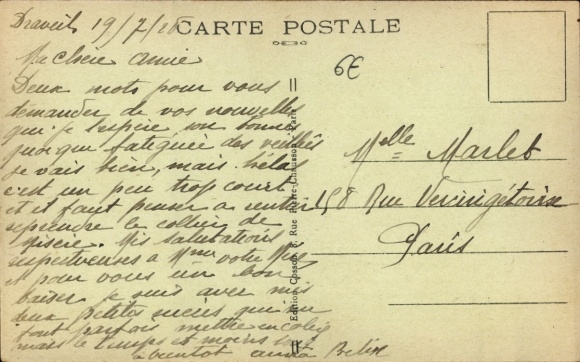 Draveil 19/7/26
CARTE POSTALE
6€
Ma Chère Amie
Deux mots pour vous
demander de vos nouvelles
que j'espère, son bonnes
quoique fatiguée des veillées
je vais bien, mais hélas
c'est un peu trop court
et il faut penser a rentrer
reprendre le collier de
misère. Mes salutations
respectueuses a Mme votre
et pour vous un bon
baiser je suis avec mes
deux petites nièces qui me
font parfois mettre en colère
mais le temps est moins
a bientôt
Melle Marlet
158 Rue Vercingétorix
Paris
Edition Cosson, Rue Pierre-Chausson, Paris